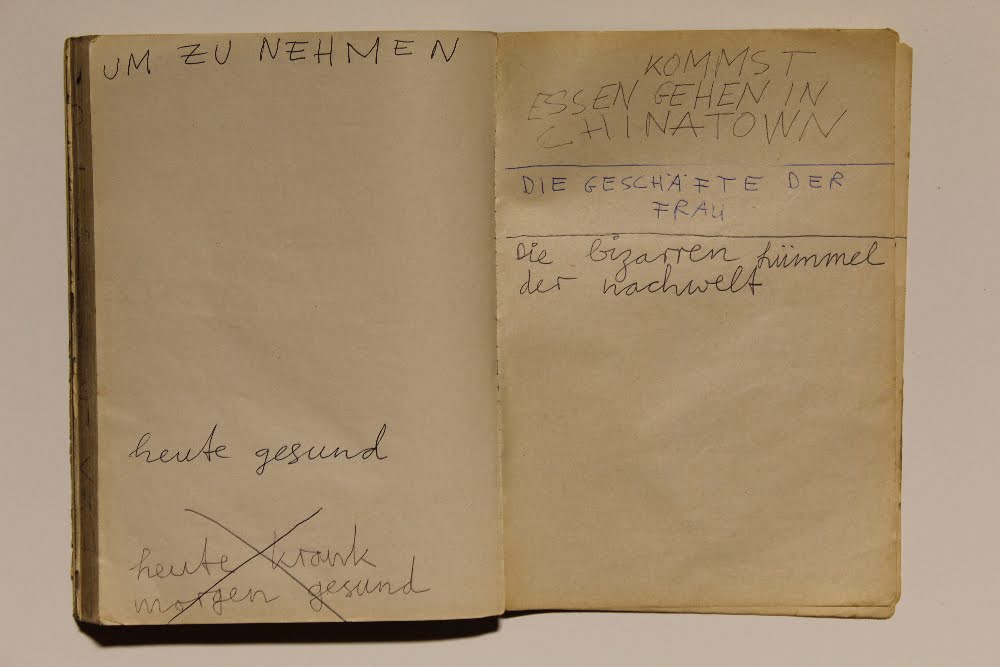 UM ZU NEHMEN
heute gesund
heute krank
morgen gesund
KOMMST
ESSEN GEHEN IN
CHINATOWN
DIE GESCHÄFTE DER
FRAU
Die bizarren
der nachwelt